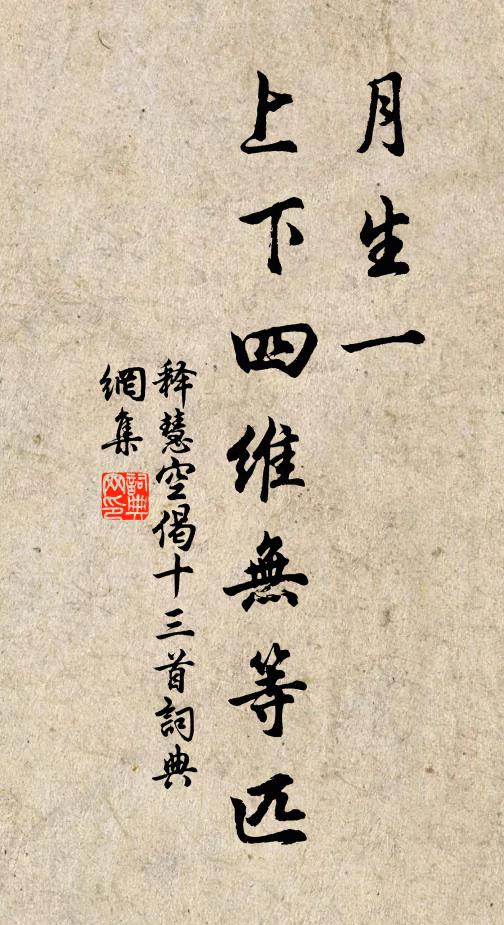 月生一
上下四維無等匹
釋慧空偈十三首詞典
網集
詞典
網印